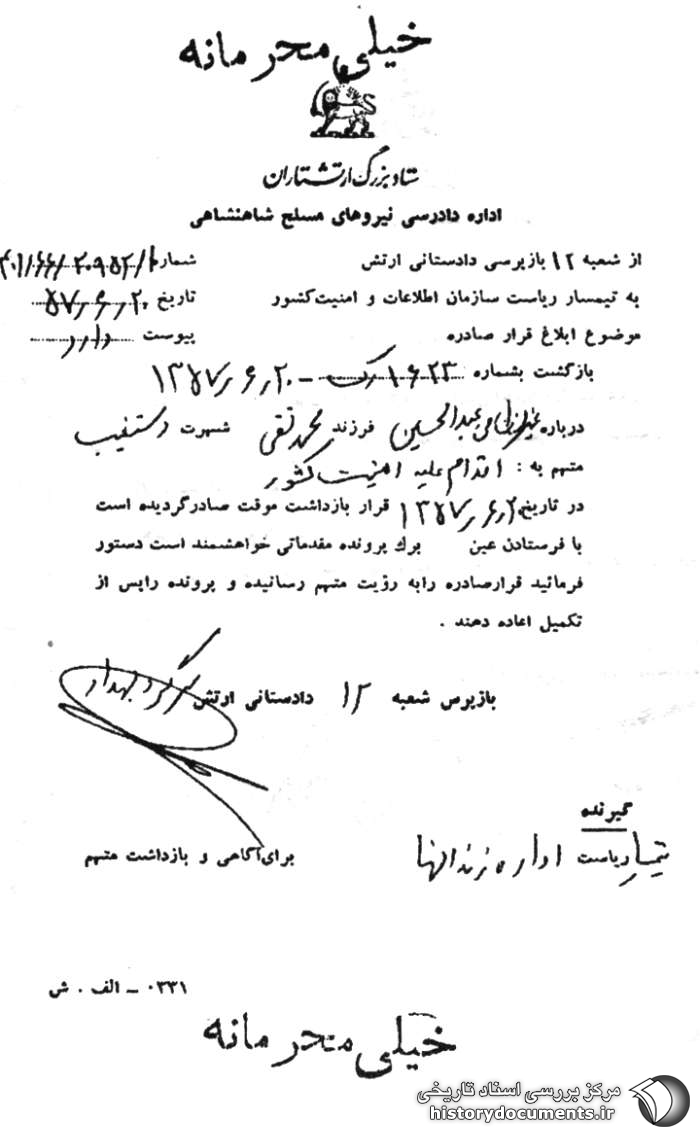 خیلی محرمانه
ستاد بزرگ ارتشتاران
اداره دادرسی نیروهای مسلح شاهنشاهی
از شعبه ۱۲ بازپرسی دادستانی ارتش
شماره ۴۰۱/۶۶/۲۰۹۵۲/۱
به تیمسار ریاست سازمان اطلاعات و امنیت کشور
تاریخ ۲۰ر۶ر۵۷
موضوع ابلاغ قرار صادره
پیوست دارد
بازگشت بشماره ۱۶۲۳ ک - ۲۰ر۶ر۱۳۵۷
درباره غیرنظامی عبدالحسین فرزند محمدتقی شهرت دستغیب
متهم به : اقدام علیه امنیت کشور
در تاریخ ۲۰ر۶ر۱۳۵۷ قرار بازداشت موقت صادر گردیده است
با فرستادن عین برك پرونده مقدماتی خواهشمند است دستور
فرمائید قرار صادره را به رؤیت متهم رسانیده و پرونده را پس از
تکمیل اعاده دهند .
بازپرس شعبه ۱۲ دادستانی ارتش سرگرد بهداد
گیرنده
تیمسار ریاست اداره زندانها
برای آگاهی و بازداشت متهم
۰۳۳۱ - الف . ش
خیلی محرمانه
مرکز بررسی اسناد تاریخی
historydocuments.ir